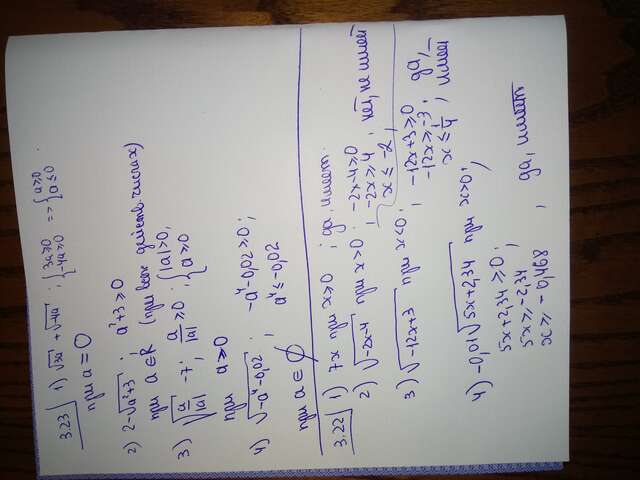 3.23 1) √3a + √-4a ; { 3a ≥ 0 -4a ≥ 0 => { a ≥ 0 a ≤ 0
при a = 0
2) 2-√a²+3 ; a²+3 ≥ 0
при a ∈ R (при всех действ. числах)
3) √a/|a| - 7 ; a/|a| ≥ 0 ; { |a| > 0, a ≥ 0
при a ≥ 0
4) √-a⁴-0,02 ; -a⁴-0,02 ≥ 0 ;
a⁴ ≤ -0,02
при a ∈ ∅
3.22 1) 7x при x ≥ 0 ; да имеет.
2) √-2x-4 при x > 0 ; -2x-4 ≥ 0
-2x ≥ 4
x ≤ -2 , нет, не имеет
3) √-12x+3 при x < 0 ; -12x+3 ≥ 0
-12x ≥ -3 ; да,
x ≤ 1/4 , имеет
4) -0,01√5x+2,34 при x > 0 ;
5x+2,34 ≥ 0 ;
5x ≥ -2,34
x ≥ -0,468 , да, имеет